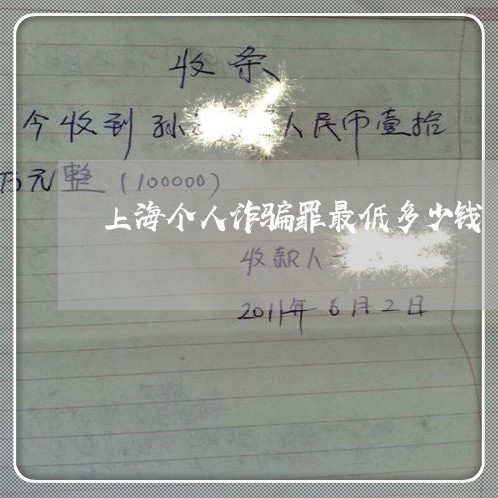 收条
今收到孙 人民币壹拾
万元整（100000）
上海个人诈骗罪最低多少钱
收款人
2011年6月2日